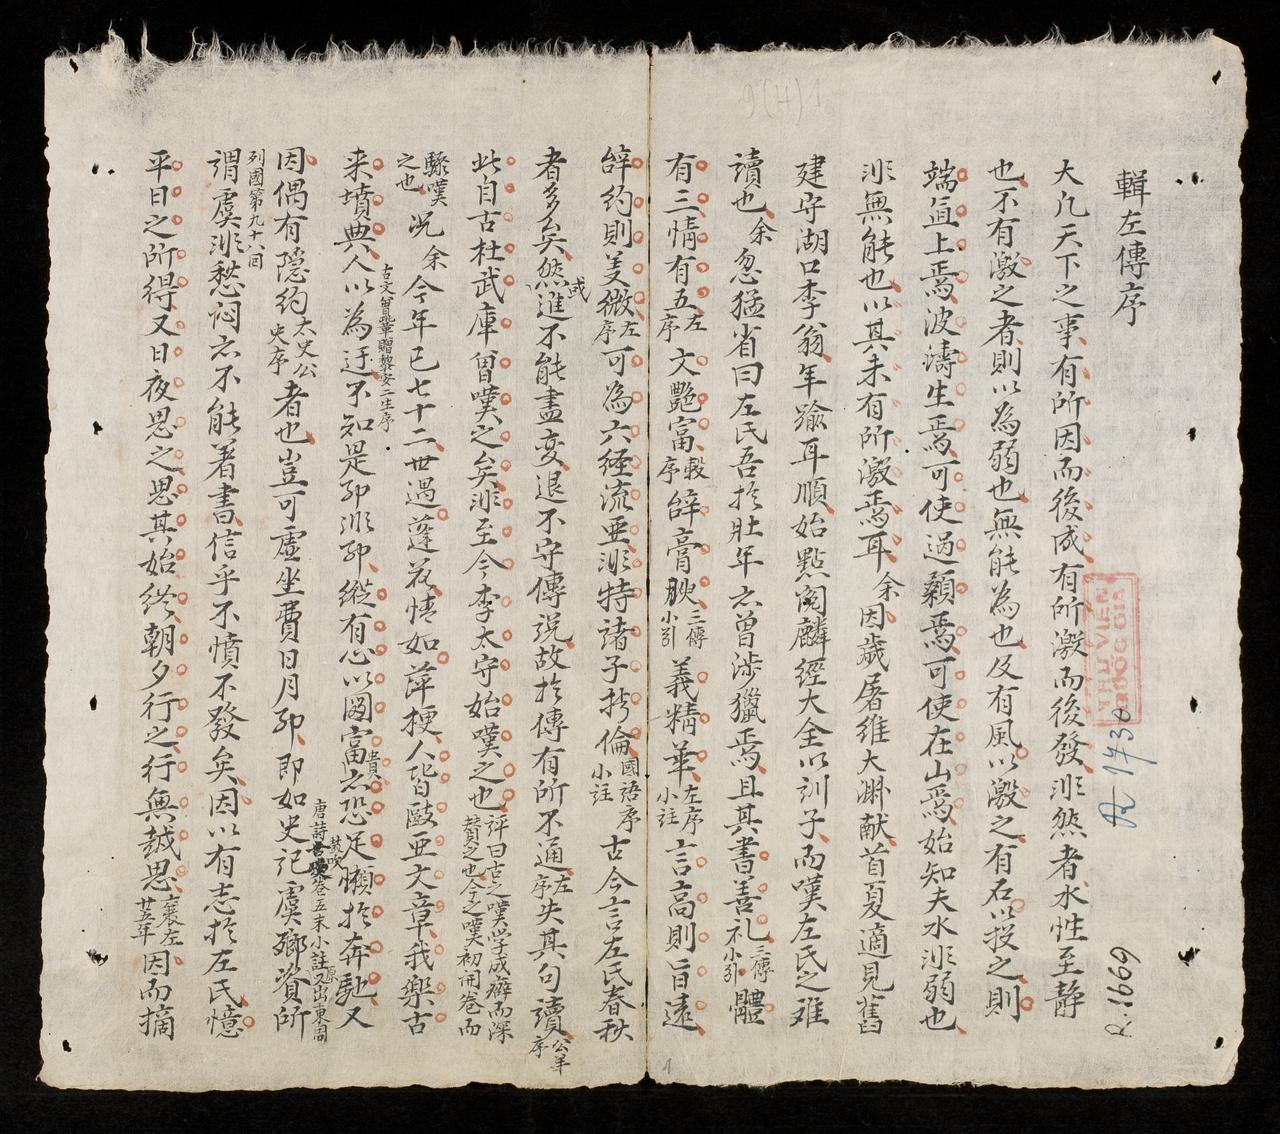 輯左傳序
大凢天下之事有所因而後成有所激而後發非然者水性至静
也不有激之者則以為弱也無能為也及有風以激之有石以投之則
端直上焉波濤生焉可使過顙焉可使在山焉始知夫水非弱也
非無能也以其未有所激焉耳余因歲屠維大淵献首夏適見舊
建守湖口李翁年踰耳順始點閲麟經大全以訓子而嘆左氏之难
讀也余忽猛省曰左氏吾扵壯年亦曽涉獵焉且其書善礼三傳小引體
有三情有五左序文艶富穀序辝膏腴三傳小引義精華左序小註言高則旨遠
辝約則羙微左序可為六経流亜非特諸子扵倫國語序小註古今言左氏春秋
者多矣然或進不能盡変退不守傳説故扵傳有所不通左序失其句讀公羊序
此自古杜武庫曽嘆之矣非至今李太守始嘆之也評曰古之嘆学成癖而深
賛之也今之嘆初開卷而
驟嘆之也况余今年已七十二世過蓬花情如萍梗人皆敺亜文章我樂古
来墳典人以為迂不知是邜非邜縱有心以圖富貴亦恐足懶扵奔馳又
古文曽鞏贈黎安二生序
唐詩鼓吹卷五末小註又出東周
列國第九十八回
因偶有隠約太史公史序者也豈可虚坐費日月邜即如史記虞鄉資所
謂虞非愁悶亦不能著書信乎不憤不發矣因以有志扵左氏憶
平日之所得又日夜思之思其始終朝夕行之行無越思襄左廿五年因而摘
THƯ VIỆN
QUỐC GIA
R.1730
R.1669